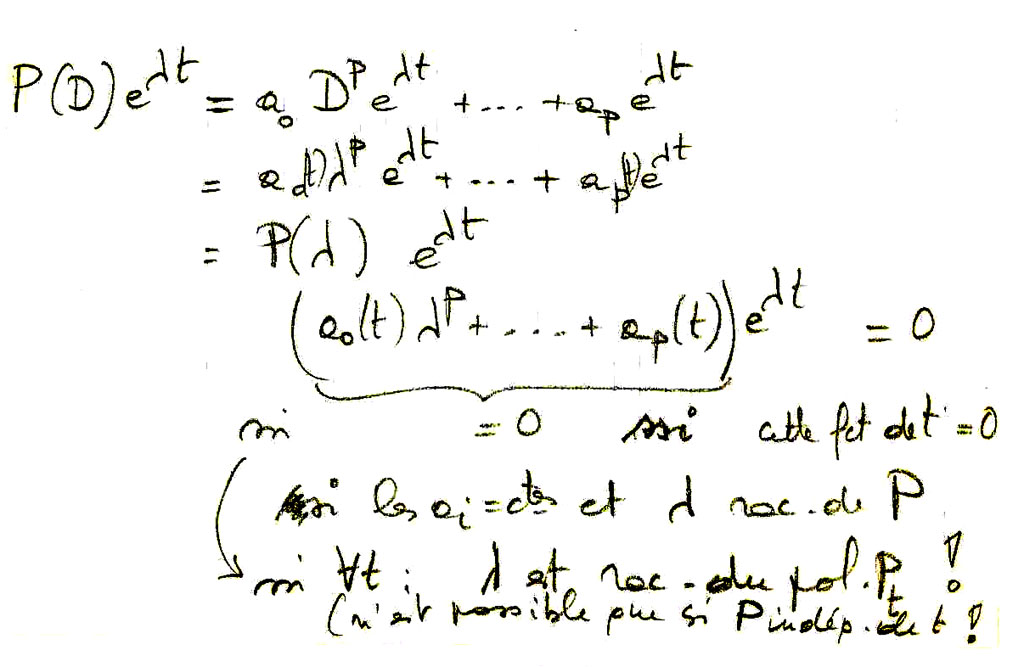 P(D)e^{λt} = a₀ D^p e^{λt} + ... + a_p e^{λt}
= a₀(t) λ^p e^{λt} + ... + a_p(t) e^{λt}
= P(λ) e^{λt}
(a₀(t) λ^p + .... + a_p(t)) e^{λt} = 0
ssi = 0 ssi cette fct de t = 0
ssi les a_i = ctes et λ rac. de P
ssi ∀t : λ est rac. du pol. P_t !
(n'est possible que si P indép. de t !